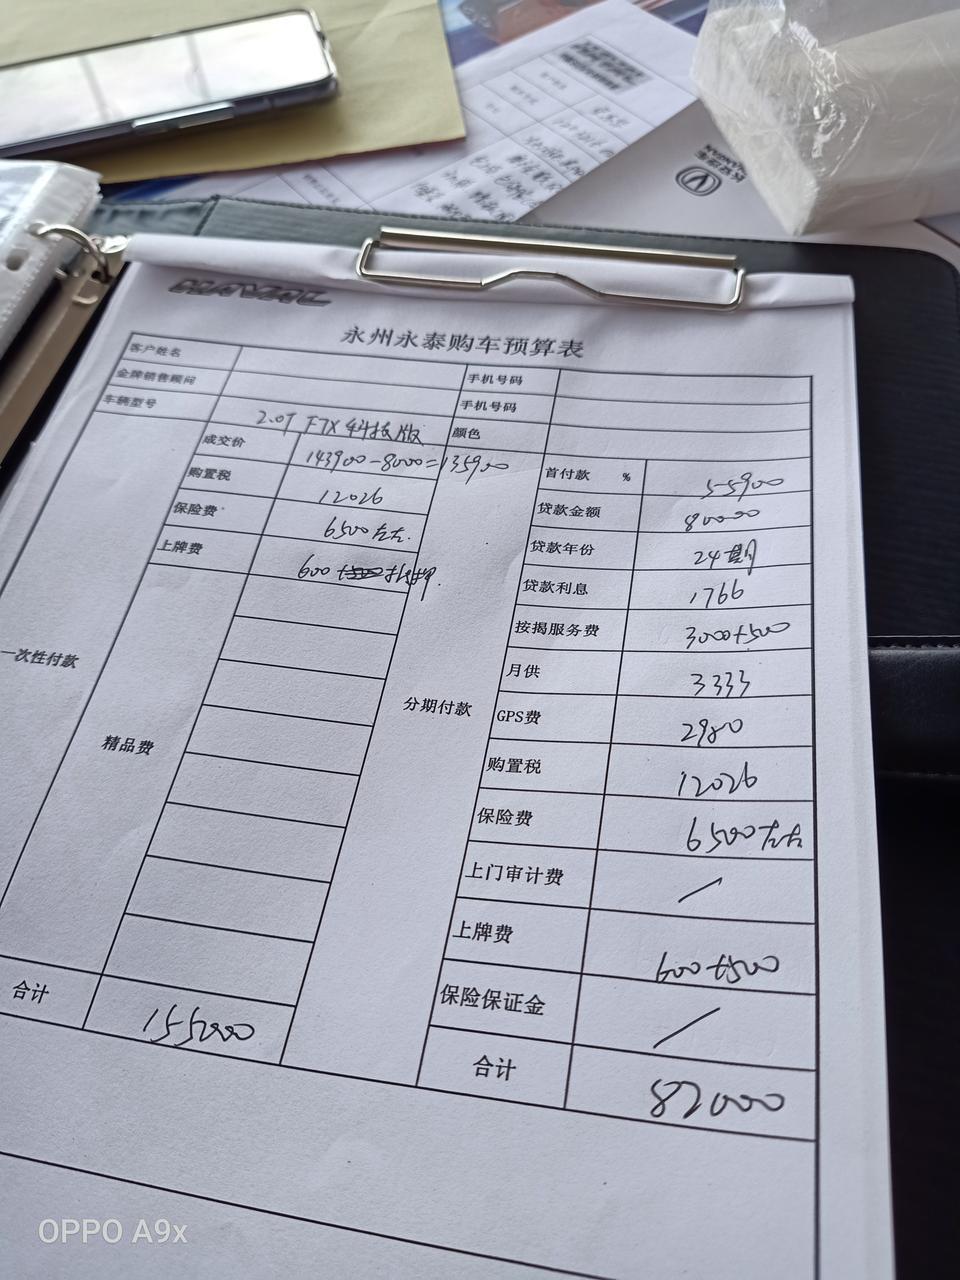 HAVAL
永州永泰购车预算表
客户姓名
手机号码
金牌销售顾问
手机号码
车辆型号 2.0T F7X 科技版
颜色
一次性付款
成交价 143900-8000=135900
购置税 12026
保险费 6500左右.
上牌费 600
精品费
合计 155000
分期付款
首付款 % 55900
贷款金额 80000
贷款年份 24期
贷款利息 1766
按揭服务费 3000+500
月供 3333
GPS费 2980
购置税 12026
保险费 6500左右
上门审计费 /
上牌费 600+500
保险保证金 /
合计 82000
长安汽车
CHANGAN
OPPO A9x